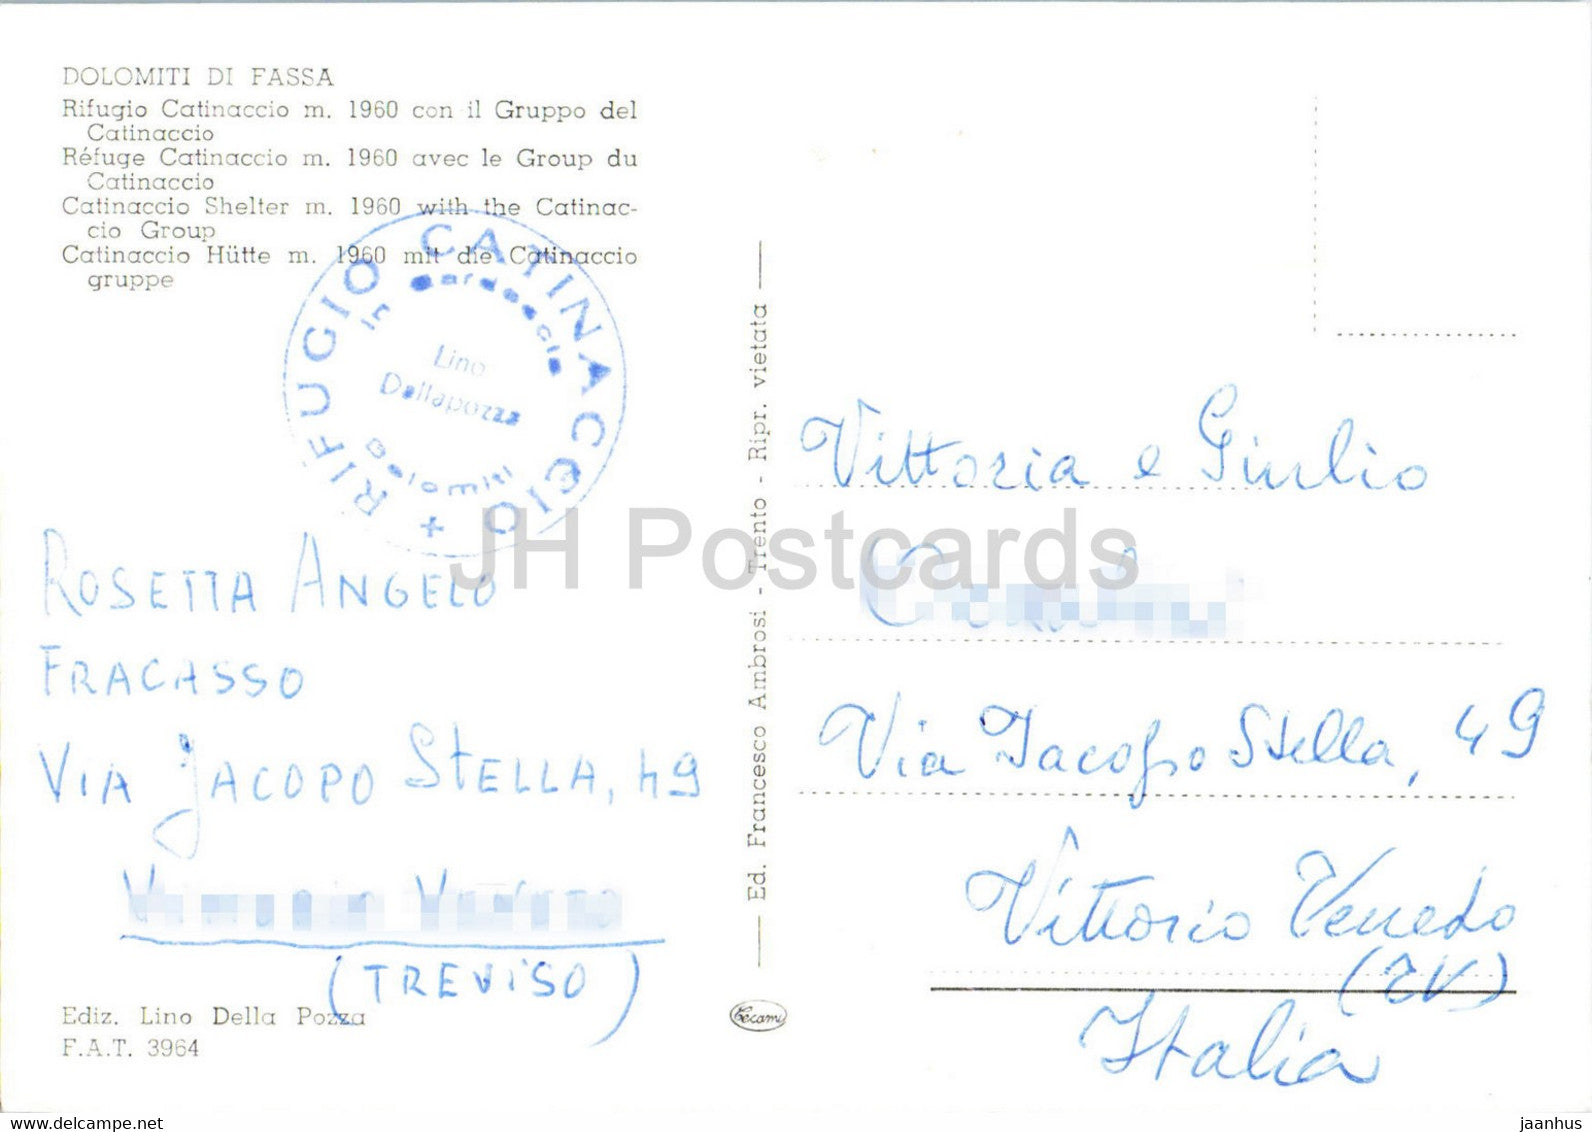 DOLOMITI DI FASSA
Rifugio Catinaccio m. 1960 con il Gruppo del
Catinaccio
Réfuge Catinaccio m. 1960 avec le Group du
Catinaccio
Catinaccio Shelter m. 1960 with the Catinac-
cio Group
Catinaccio Hütte m. 1960 mit die Catinaccio
gruppe
RIFUGIO CATINACCIO +
in Gardeccia
Lino
Dallapozza
Dolomiti
ROSETTA ANGELO
FRACASSO
VIA JACOPO STELLA, 49
(TREVISO)
Ediz. Lino Della Pozza
F.A.T. 3964
Ed. Francesco Ambrosi - Trento - Ripr. vietata
Cecami
Vittoria e Giulio
Via Jacopo Stella, 49
Vittorio Veneto
(TV)
Italia
JH Postcards
jaanhus
www.delcampe.net